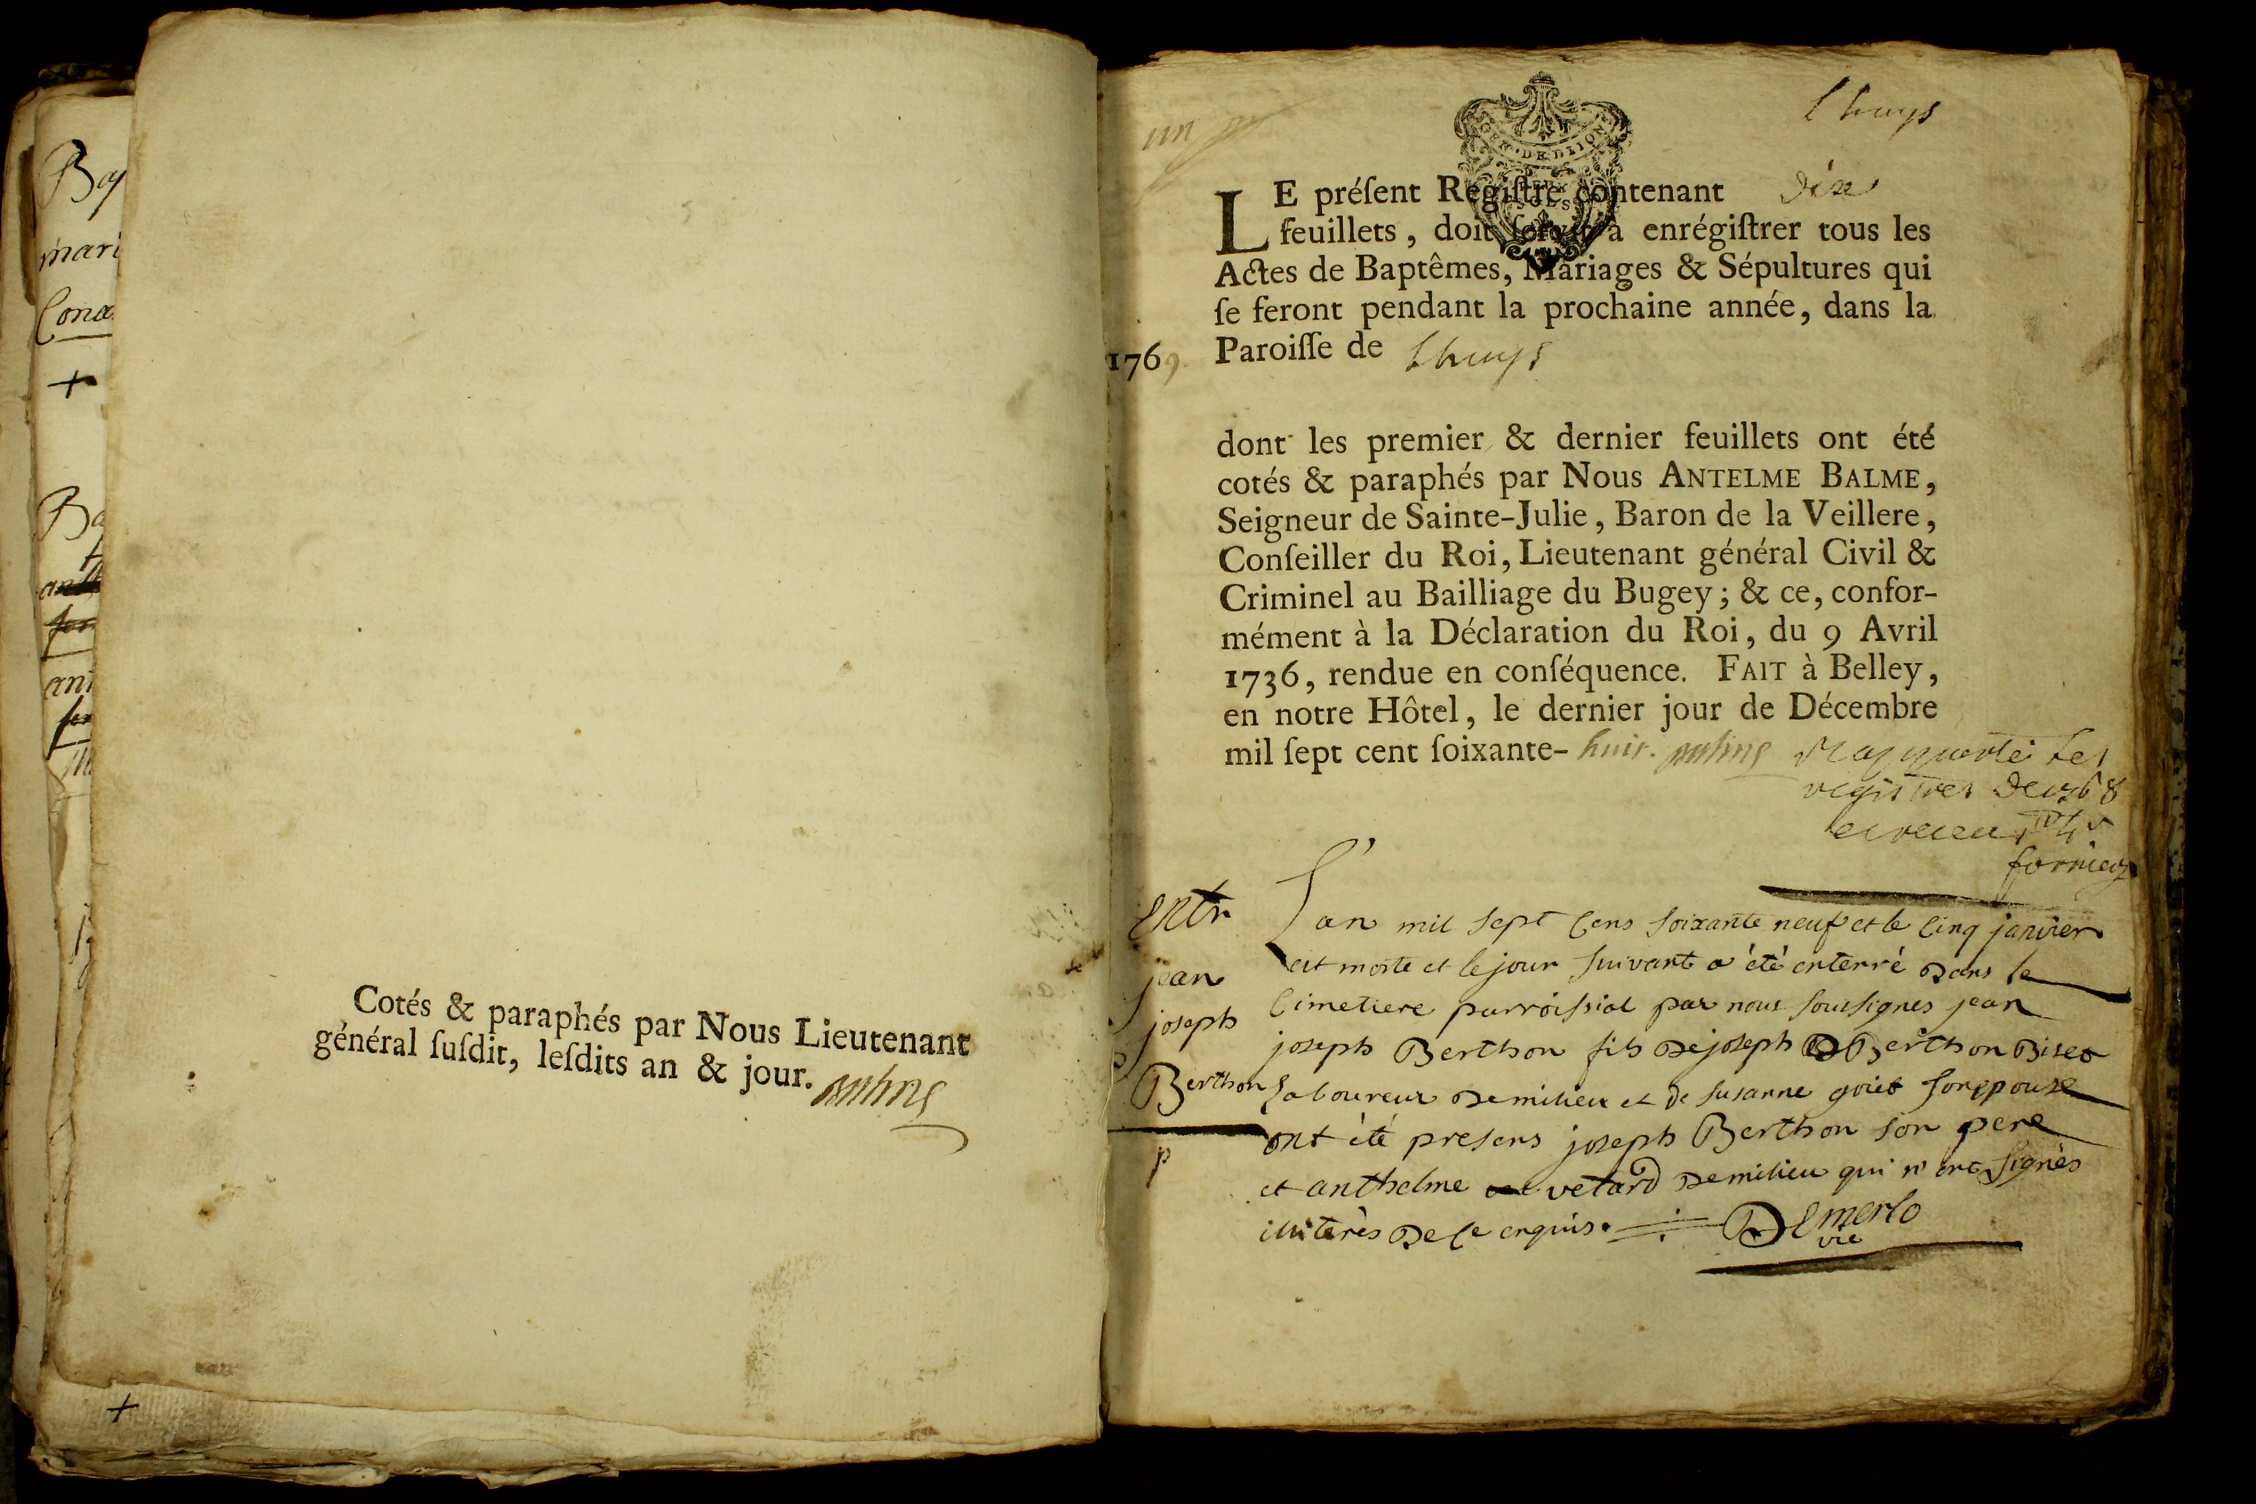 Bap
mari
Cona
+
Cotés & paraphés par Nous Lieutenant
général ſuſdit, leſdits an & jour.
+
un
Lhuys
GEN. DE DIJON
LE préſent Regiſtre contenant dix
feuillets, doit ſervir à enrégiſtrer tous les
Actes de Baptêmes, Mariages & Sépultures qui
ſe feront pendant la prochaine année, dans la
1769 Paroiſſe de Lhuys
dont les premier & dernier feuillets ont été
cotés & paraphés par Nous ANTELME BALME,
Seigneur de Sainte-Julie, Baron de la Veillere,
Conſeiller du Roi, Lieutenant général Civil &
Criminel au Bailliage du Bugey; & ce, confor-
mément à la Déclaration du Roi, du 9 Avril
1736, rendue en conſéquence. FAIT à Belley,
en notre Hôtel, le dernier jour de Décembre
mil ſept cent ſoixante-huit.
registres de 1768
Entr
jean
joseph
Berthon
p
L'an mil sept cens soixante neuf et le cinq janvier
est morte et le jour suivant a été enterré dans le
cimetiere parroissial par nous soussignes jean
joseph Berthon fils de joseph Berthon
laboureur de milieu et de susanne goiet son epouse
ont été presens joseph Berthon son pere
et anthelme vetard de milieu qui n'ont signès
illiterès de ce enquis. Demerlo
vic